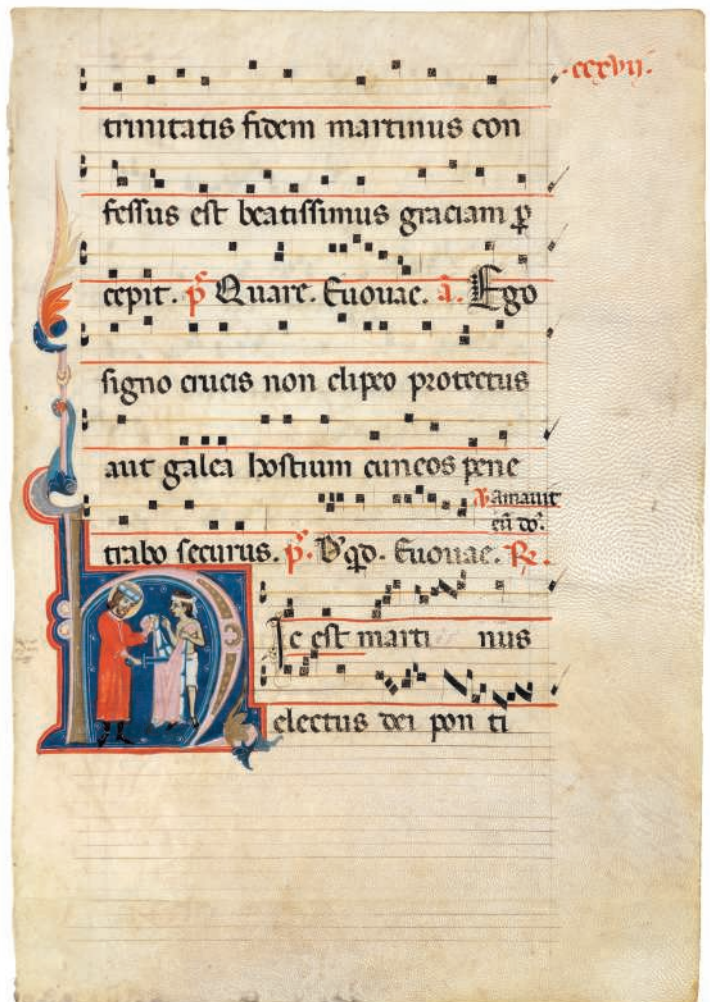 .ccxvii.
trinitatis fidem martinus con
fessus est beatissimus graciam p̲
cepit. p̄s Quare. Euouae. ā. Ego
signo crucis non clipeo protectus
aut galea hostium cuneos pene
℣ amauit
eū do᷑.
trabo securus. p̄s. D̄ q̄d. Euouae. ℟.
Hic est marti nus
electus dei pon ti